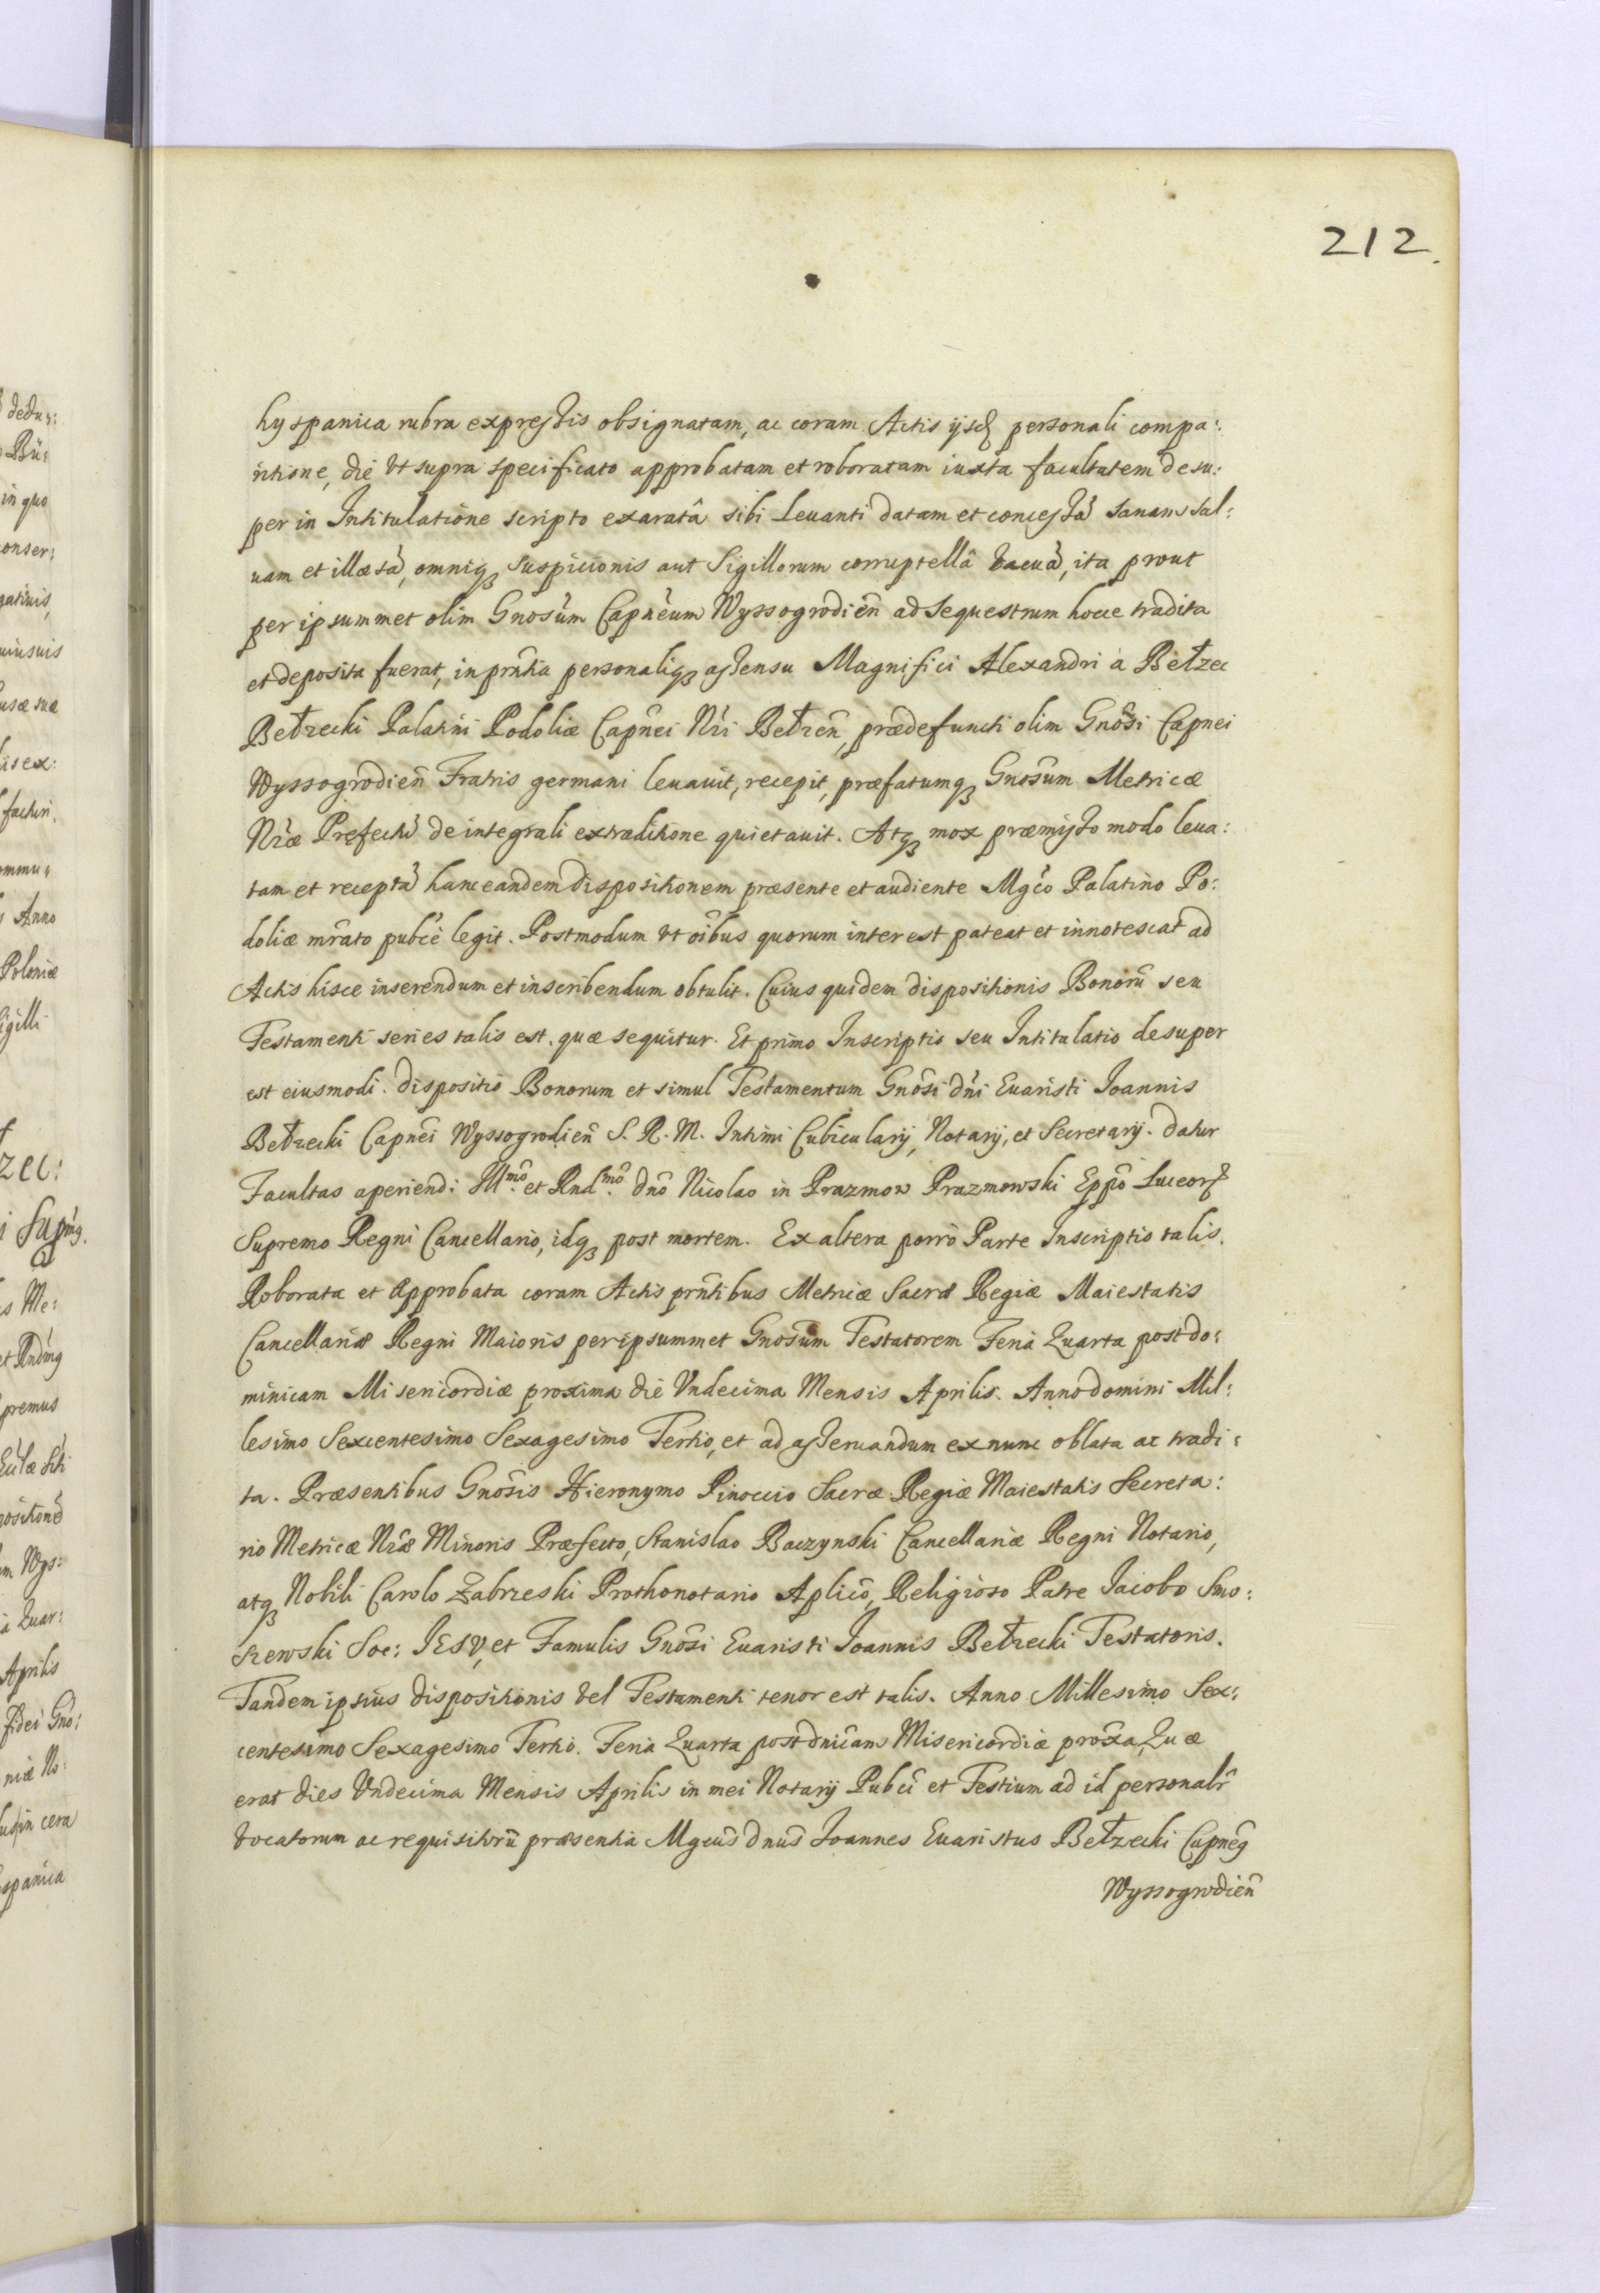 212.
hyspanica rubra expressis obsignatam, ac coram Actis ijsdem personali compa:
ritione, die vt supra specificato approbatam et roboratam iuxta facultatem desu:
per in Intitulatione scripto exaratâ sibi Leuanti datam et concessã sanam sal:
uam et illæsã, omniq₃ suspicionis aut Sigillorum corruptellâ vacuã, ita prout
per ipsummet olim Gnosũm Capñeum Wyssogrodieñ ad sequestrum hocce tradita
et deposita fuerat, in prñtia personaliq₃ assensu Magnifici Alexandri à Bełzec
Bełzecki Palatini Podoliæ Capñei Nri Bełzeñ, prædefuncti olim Gnõsi Capnei
Wyssogrodieñ Fratris germani leuauit, recepit, præfatumq₃ Gnosũm Metricæ
Nræ Præfectũ de integrali extraditione quietauit. Atq₃ mox præmisso modo leua:
tam et receptã hanc eandem dispositionem præsente et audiente Mgcõ Palatino Po:
doliæ mrãto pubcè legit. Postmodum vt oĩbus quorum interest pateat et innotescat ad
Actis hisce inserendum et inscribendum obtulit. Cuius quidem dispositionis Bonorũ seu
Testamenti series talis est. quæ sequitur. Et primo Inscriptio seu Intitulatio desuper
est eiusmodi. dispositio Bonorum et simul Testamentum Gnõsi dñi Euaristi Ioannis
Bełzecki Capñei Wyssogrodieñ S. R. M. Intimi Cubicularij, Notarij, et Secretarij. datur
Facultas aperiendi Illmõ. et Rndmõ. dñõ Nicolao in Prazmow Prazmowski Eppõ Luceor
Supremo Regni Cancellario, idq₃ post mortem. Ex altera porrò Parte Inscriptio talis.
Roborata et Approbata coram Actis prñtibus Metricæ Sacræ Regiæ Maiestatis
Cancellariæ Regni Maioris per ipsummet Gnosũm Testatorem Feria Quarta post do:
minicam Misericordiæ proxima die Vndecima Mensis Aprilis. Anno domini Mil:
lesimo Sexcentesimo Sexagesimo Tertio, et ad asseruandum ex nunc oblata ac tradi:
ta. Præsentibus Gnõsis Hieronymo Pinoccio Sacræ Regiæ Maiestatis Secreta:
rio Metricæ Nræ Minoris Præfecto, Stanislao Baczynski Cancellariæ Regni Notario,
atq₃ Nobili Carolo Zabrzeski Prothonotario Aplicõ, Religioso Patre Iacobo Smo:
szewski Soc: IESV, et Famulis Gnõsi Euaristi Ioannis Bełzecki Testatoris.
Tandem ipsius dispositionis vel Testamenti tenor est talis. Anno Millesimo Sex:
centesimo Sexagesimo Tertio. Feria Quarta post dnicam Misericordiæ proxa, Quæ
erat dies Vndecima Mensis Aprilis in mei Notarij Pubci et Testium ad id personalr
vocatorum ac requisitorũ præsentia Mgcus dnus Ioannes Euaristus Bełzecki Capneg
Wyssogrodieñ